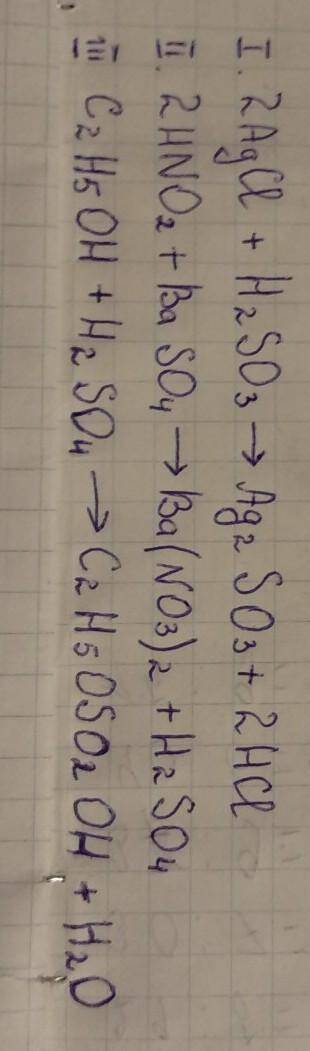 I. 2AgCl + H₂SO₃ → Ag₂SO₃ + 2HCl
II. 2HNO₂ + BaSO₄ → Ba(NO₃)₂ + H₂SO₄
III C₂H₅OH + H₂SO₄ → C₂H₅OSO₂OH + H₂O